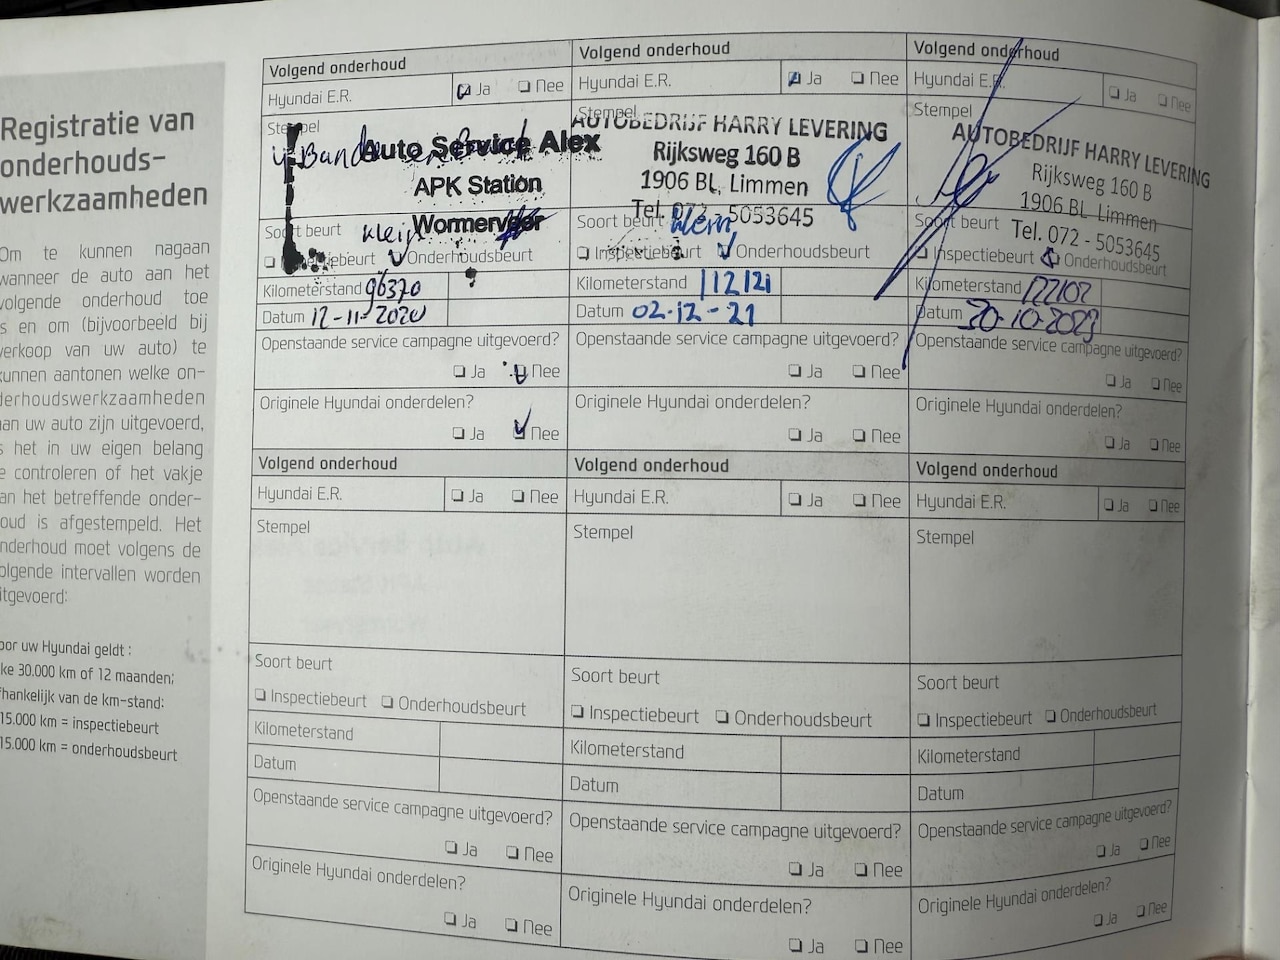 Registratie van
onderhouds-
werkzaamheden
Om te kunnen nagaan
wanneer de auto aan het
volgende onderhoud toe
is en om (bijvoorbeeld bij
verkoop van uw auto) te
kunnen aantonen welke on-
derhoudswerkzaamheden
aan uw auto zijn uitgevoerd,
is het in uw eigen belang
te controleren of het vakje
van het betreffende onder-
houd is afgestempeld. Het
onderhoud moet volgens de
volgende intervallen worden
uitgevoerd:
oor uw Hyundai geldt :
ke 30.000 km of 12 maanden;
fhankelijk van de km-stand:
15.000 km = inspectiebeurt
15.000 km = onderhoudsbeurt
Volgend onderhoud
Hyundai E.R. Ja Nee
Stempel
Auto Service Alex
APK Station
Wormerveer
Soort beurt klein
Onderhoudsbeurt
Kilometerstand 96370
Datum 12-11-2020
Openstaande service campagne uitgevoerd?
Ja Nee
Originele Hyundai onderdelen?
Ja Nee
Volgend onderhoud
Hyundai E.R. Ja Nee
Stempel
AUTOBEDRIJF HARRY LEVERING
Rijksweg 160 B
1906 BL, Limmen
Tel. 072 - 5053645
Soort beurt klein
Inspectiebeurt Onderhoudsbeurt
Kilometerstand 112121
Datum 02-12-21
Openstaande service campagne uitgevoerd?
Ja Nee
Originele Hyundai onderdelen?
Ja Nee
Volgend onderhoud
Hyundai E.R. Ja Nee
Stempel
AUTOBEDRIJF HARRY LEVERING
Rijksweg 160 B
1906 BL Limmen
Tel. 072 - 5053645
Soort beurt
Inspectiebeurt Onderhoudsbeurt
Kilometerstand 122102
Datum 20-10-2023
Openstaande service campagne uitgevoerd?
Ja Nee
Originele Hyundai onderdelen?
Ja Nee
Volgend onderhoud
Hyundai E.R. Ja Nee
Stempel
Soort beurt
Inspectiebeurt Onderhoudsbeurt
Kilometerstand
Datum
Openstaande service campagne uitgevoerd?
Ja Nee
Originele Hyundai onderdelen?
Ja Nee
Volgend onderhoud
Hyundai E.R. Ja Nee
Stempel
Soort beurt
Inspectiebeurt Onderhoudsbeurt
Kilometerstand
Datum
Openstaande service campagne uitgevoerd?
Ja Nee
Originele Hyundai onderdelen?
Ja Nee
Volgend onderhoud
Hyundai E.R. Ja Nee
Stempel
Soort beurt
Inspectiebeurt Onderhoudsbeurt
Kilometerstand
Datum
Openstaande service campagne uitgevoerd?
Ja Nee
Originele Hyundai onderdelen?
Ja Nee